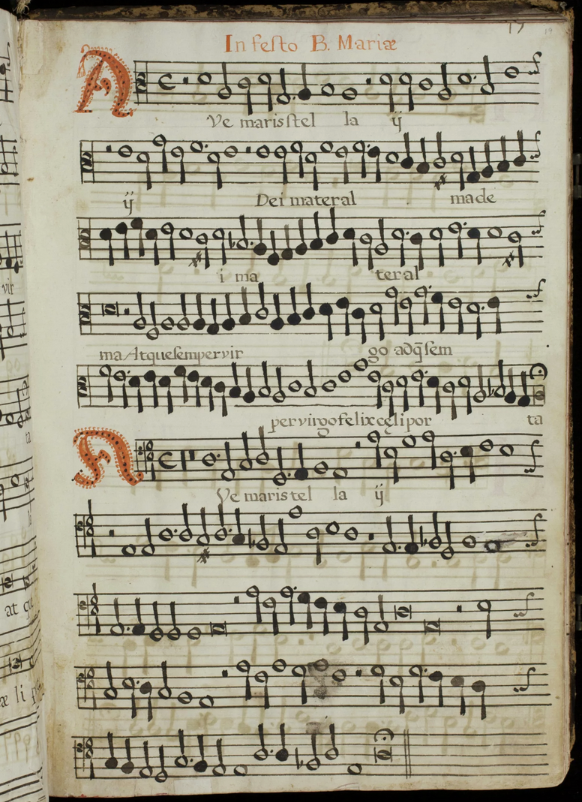 17 19
In festo B. Mariæ
AVe maris stel la ij
ij Dei mater al ma de
i ma ter al
ma Atque semper vir go adq̃ sem
per virgo felix cęli por ta
AVe maris stel la ij